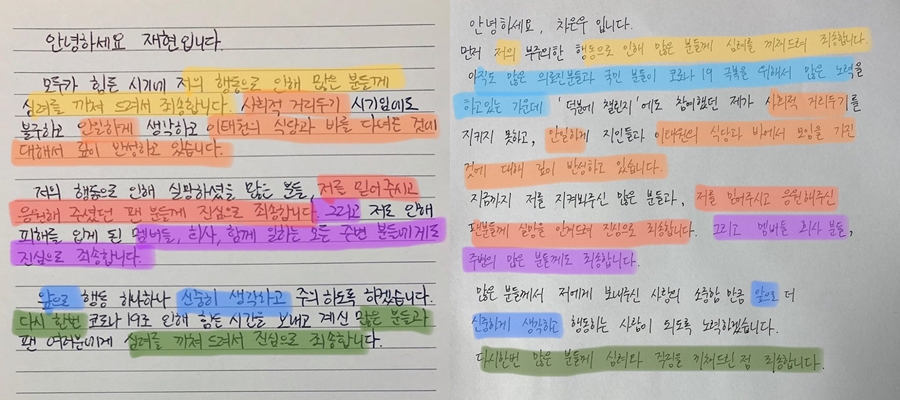 안녕하세요 재현입니다.
모두가 힘든 시기에 저의 행동으로 인해 많은 분들께
심려를 끼쳐 드려서 죄송합니다. 사회적 거리두기 시기임에도
불구하고 안일하게 생각하고 이태원의 식당과 바를 다녀온 것에
대해서 깊이 반성하고 있습니다.
저의 행동으로 인해 실망하셨을 많은 분들, 저를 믿어주시고
응원해 주셨던 팬 분들께 진심으로 죄송합니다. 그리고 저로 인해
피해를 입게 된 멤버들, 회사, 함께 일하는 모든 주변 분들에게도
진심으로 죄송합니다.
앞으로 행동 하나하나 신중히 생각하고 주의하도록 하겠습니다.
다시 한번 코로나19로 인해 힘든 시간을 보내고 계신 많은 분들과
팬 여러분에게 심려를 끼쳐 드려서 진심으로 죄송합니다.
안녕하세요, 차은우 입니다.
먼저 저의 부주의한 행동으로 인해 많은 분들께 심려를 끼쳐드려 죄송합니다.
아직도 많은 의료진분들과 국민 분들이 코로나 19 극복을 위해서 많은 노력을
하고있는 가운데 '덕분에 챌린지'에도 참여했던 제가 사회적 거리두기를
지키지 못하고, 안일하게 지인들과 이태원의 식당과 바에서 모임을 가진
것에 대해 깊이 반성하고 있습니다.
지금까지 저를 지켜봐주신 많은 분들과, 저를 믿어주시고 응원해주신
팬분들께 실망을 안겨드려 진심으로 죄송합니다. 그리고 멤버들 회사 분들,
주변의 많은 분들께도 죄송합니다.
많은 분들께서 저에게 보내주신 사랑의 소중함 만큼 앞으로 더
신중하게 생각하고 행동하는 사람이 되도록 노력하겠습니다.
다시한번 많은 분들께 심려와 걱정을 끼쳐드린 점 죄송합니다.